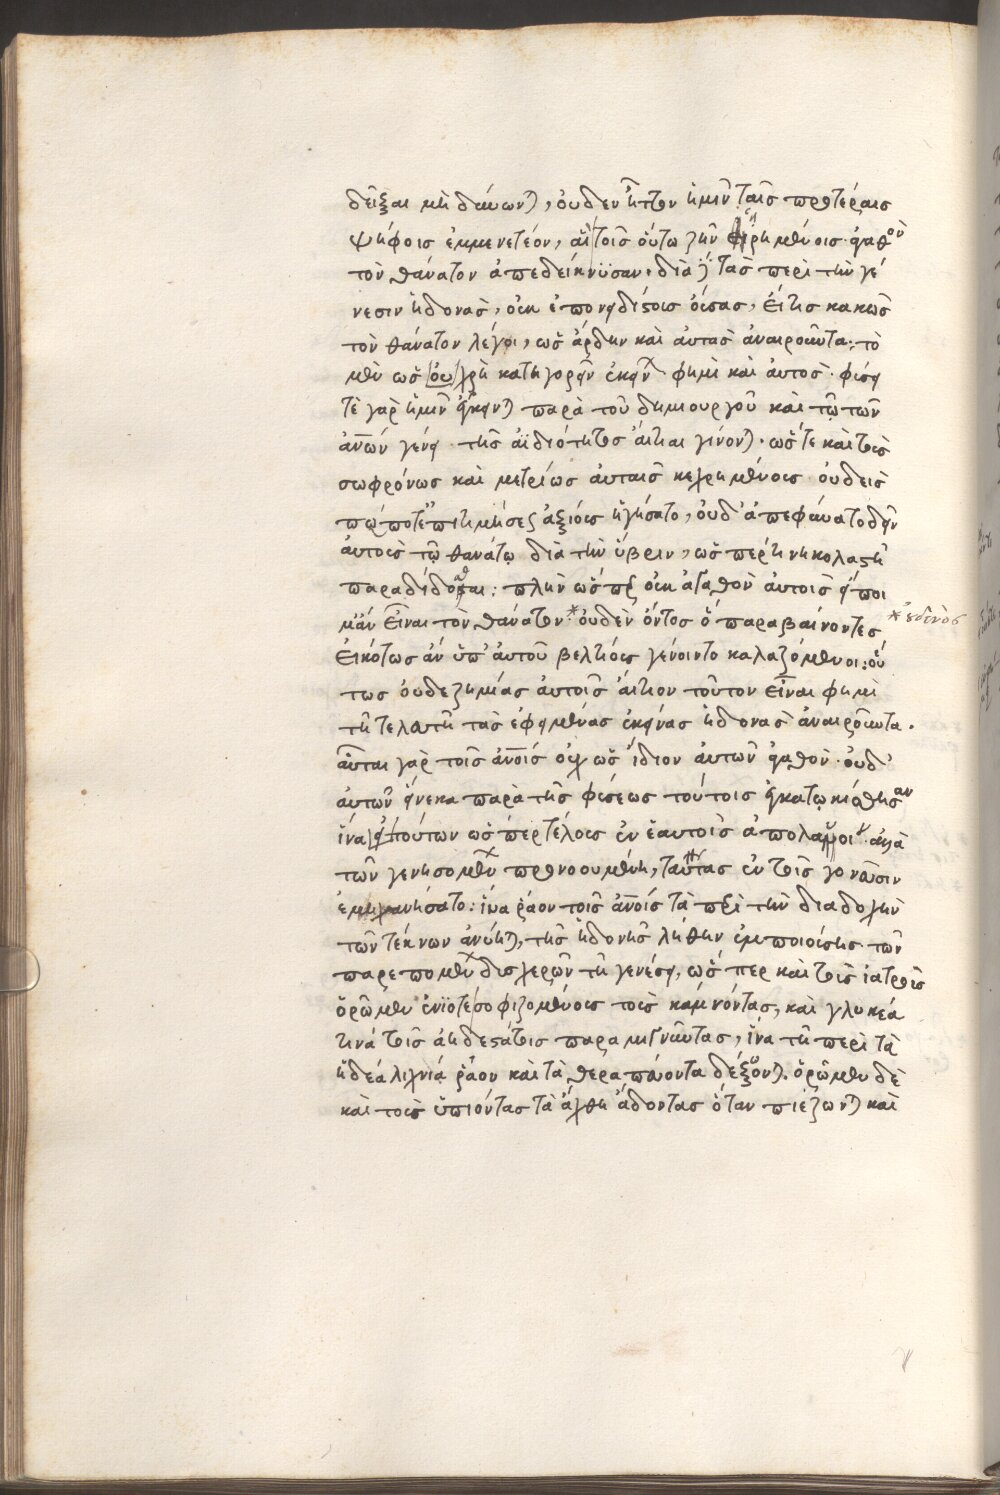 δεῖξαι μὴ δύνωνται, οὐδὲν ἧττον ἡμῖν ταῖς προτέραις
ψήφοις ἐμμενετέον, αἳ τοῖς οὕτω ζῆν ᾑρημένοις ἀγαθὸν
τὸν θάνατον ἀπεδείκνυσαν. διὰ γὰρ τὰς περὶ τὴν γέ
νεσιν ἡδονὰς, οὐκ ἐπονειδίστους οὔσας, εἴ τις κακῶς
τὸν θάνατον λέγοι, ὡς ἄρδην καὶ αὐτὰς ἀναιροῦντα: τὸ
μὲν ὡς οὐ χρὴ κατηγορεῖν ἐκείνων φημὶ καὶ αὐτός. φύσει
τὲ γὰρ ἡμῖν ἐνῆκηνται παρὰ τοῦ δημιουργοῦ καὶ τῷ τῶν
ἀνθρώπων γένει τῆς ἀϊδιότητος αἴτιαι γίνονται. ὥστε καὶ τοὺς
σωφρόνως καὶ μετρίως αὐταῖς κεχρημένους οὐδεὶς
πώποτε ἐπιτιμήσεως ἀξίους ἡγήσατο, οὐδ' ἀπεφήνατο δεῖν
αὐτοὺς τῷ θανάτῳ διὰ τὴν ὕβριν, ὥσπερ τινὶ κολαστῇ
παραδίδοσθαι: πλὴν ὥσπερ οὐκ ἀγαθὸν αὐτοῖς εἴποι
μι ἂν εἶναι τὸν θάνατον * οὐδὲν ὄντος ὃ παραβαίνοντες
* οὐδενὸς
εἰκότως ἂν ὑπ' αὐτοῦ βελτίους γένοιντο κολαζόμενοι: οὕ
τως οὐδὲ ζημίας αὐτοῖς αἴτιον τοῦτον εἶναι φημὶ
τῇ τελευτῇ τὰς ἐφειμένας ἐκείνας ἡδονὰς ἀναιροῦντα.
αὗται γὰρ τοῖς ἀνθρώποις οὐχ ὡς ἴδιον αὐτῶν ἀγαθὸν. οὐδ'
αὐτῶν εἵνεκα παρὰ τῆς φύσεως τούτοις ἐγκατῳκίσθησαν
ἵνα τούτων ὥσπερ τέλους ἐν ἑαυτοῖς ἀπολαύοιεν. ἀλλὰ
τῶν γενησομένων προνοουμένη, ταύτας ἐν τοῖς γονεῦσιν
ἐμηχανήσατο: ἵνα ῥᾷον τοῖς ἀνθρώποις τὰ περὶ τὴν διαδοχὴν
τῶν τέκνων ἀνύηται, τῆς ἡδονῆς λήθην ἐμποιούσης τῶν
παρεπομένων δυσχερῶν τῇ γενέσει, ὥσπερ καὶ τοὺς ἰατροὺς
ὁρῶμεν ἐνίοτε σοφιζομένους τοὺς κάμνοντας, καὶ γλυκέα
τινὰ τοῖς ἀηδεστάτοις παραμιγνύντας, ἵνα τῇ περὶ τὰ
ἡδέα λιχνίᾳ ῥᾷον καὶ τὰ θεραπεύοντα δέξωνται. ὁρῶμεν δὲ
καὶ τοὺς ὑπιόντας τὰ ἄχθη ᾄδοντας ὅταν πιέζωνται καὶ